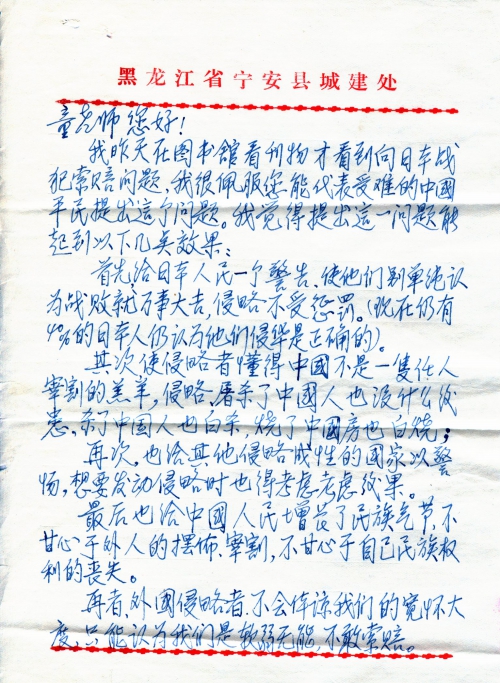 黑龙江省宁安县城建处
童老师您好!
我昨天在图书馆看刊物才看到向日本战
犯索赔问题,我很佩服您能代表受难的中國
平民提出这个问题。我觉得提出这一问题能
起到以下几类效果:
首先给日本人民一个警告、使他们别单纯认
为战败就万事大吉,侵略不受惩罚。(现在仍有
4%的日本人仍认为他们侵华是正确的)。
其次使侵略者懂得中國不是一隻任人
宰割的羔羊,侵略、屠杀了中國人也没什么后
患,杀了中国人也白杀,烧了中國房也白烧;
再次,也给其他侵略成性的國家以警
惕,想要发动侵略时也得考虑考虑后果。
最后也给中國人民增長了民族气节,不
甘心于外人的摆佈、宰割,不甘心于自己民族权
利的丧失。
再者,外國侵略者不会体谅我们的宽怀大
度,只能认为我们是软弱无能,不敢索赔。